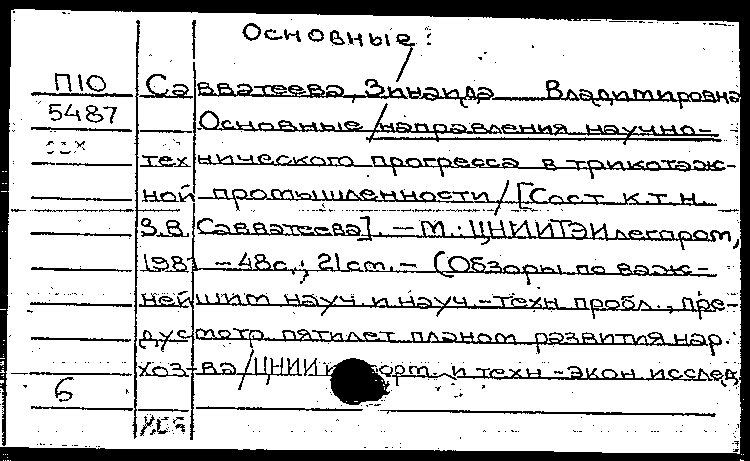 Основные:
П10 Савватеева, Зинаида Владимировна
5487 Основные/направления научно-
технического прогресса в трикотаж-
ной промышленности/[Сост. к.т.н.
З.В. Савватеева]. – М.: ЦНИИТЭИлегпром,
1981 – 48с.; 21 см. – (Обзоры по важ-
нейшим науч. и науч.-техн. пробл., пре-
дусмотр. пятилет. планом развития нар.
хоз-ва/ЦНИИ и техн.-экон. исслед
6